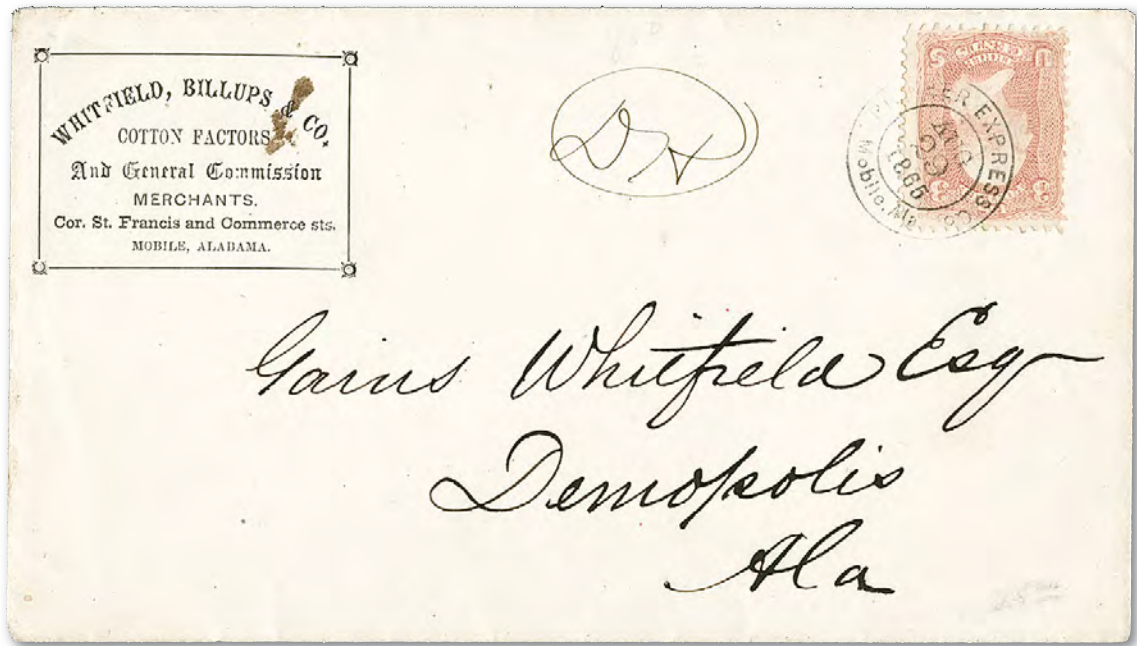 WHITFIELD, BILLUPS & CO.
COTTON FACTORS
And General Commission
MERCHANTS.
Cor. St. Francis and Commerce sts.
MOBILE, ALABAMA.
DH
EXPRESS Co.
AUG
29
1865
Mobile, Ala.
U S
THREE
CENTS
3 3
Gains Whitfield Esq
Demopolis
Ala